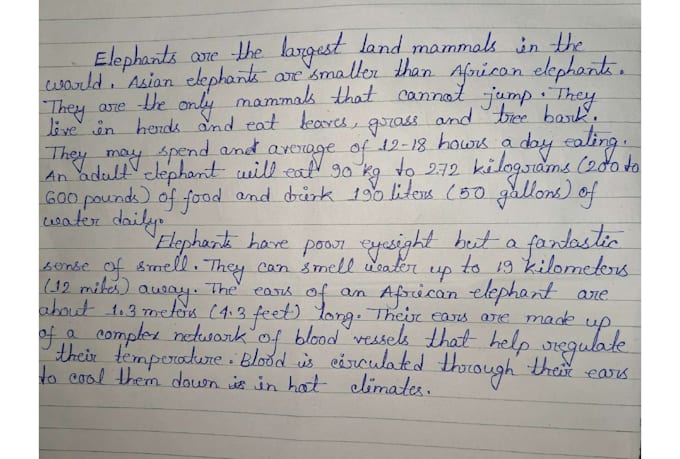 Elephants are the largest land mammals in the
world. Asian elephants are smaller than African elephants.
They are the only mammals that cannot jump. They
live in herds and eat leaves, grass and tree bark.
They may spend and average of 12-18 hours a day eating.
An adult elephant will eat 90 kg to 272 kilograms (200 to
600 pounds) of food and drink 190 liters (50 gallons) of
water daily.
Elephants have poor eyesight but a fantastic
sense of smell. They can smell water up to 19 kilometers
(12 miles) away. The ears of an African elephant are
about 1.3 meters (4.3 feet) long. Their ears are made up
of a complex network of blood vessels that help regulate
their temperature. Blood is circulated through their ears
to cool them down is in hot climates.